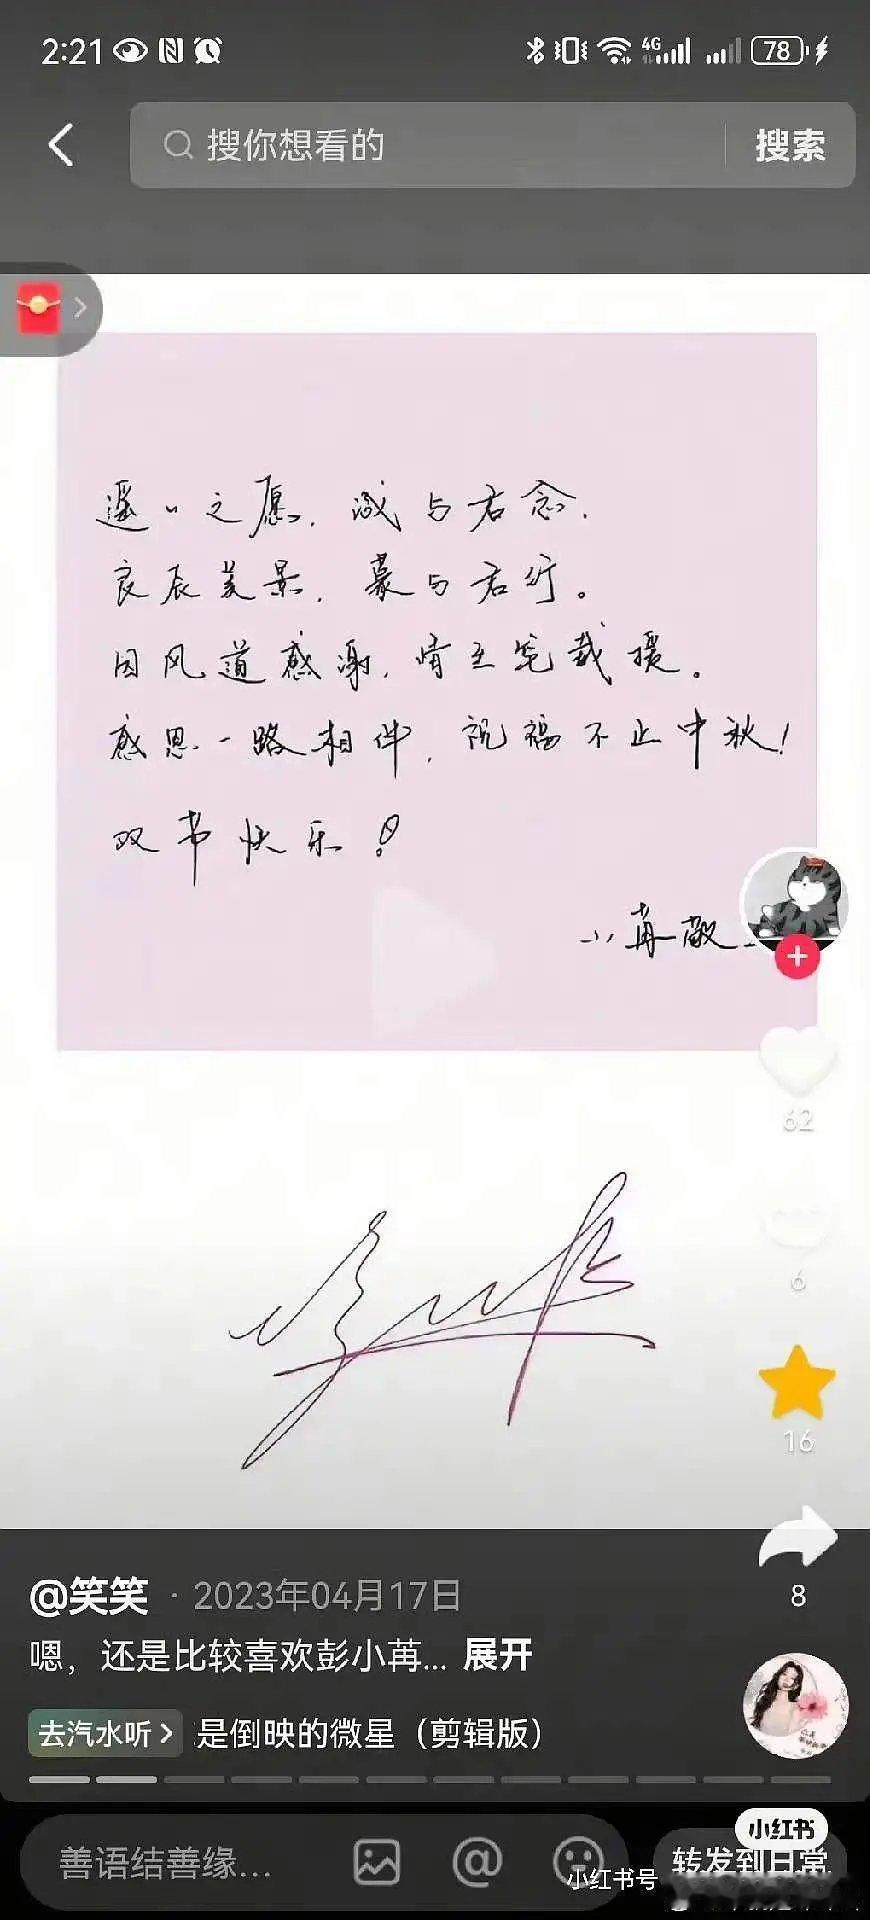 2:21
4G
78
搜你想看的
搜索
遥以之愿，诚与君念.
良辰美景，慕与君行。
因风道感谢，情至笔载援。
感恩一路相伴，祝福不止中秋！
双节快乐！
小苒敬
62
6
16
8
@笑笑 · 2023年04月17日
嗯，还是比较喜欢彭小苒... 展开
去汽水听 > 是倒映的微星（剪辑版）
善语结善缘...
转发到日常
小红书
小红书号